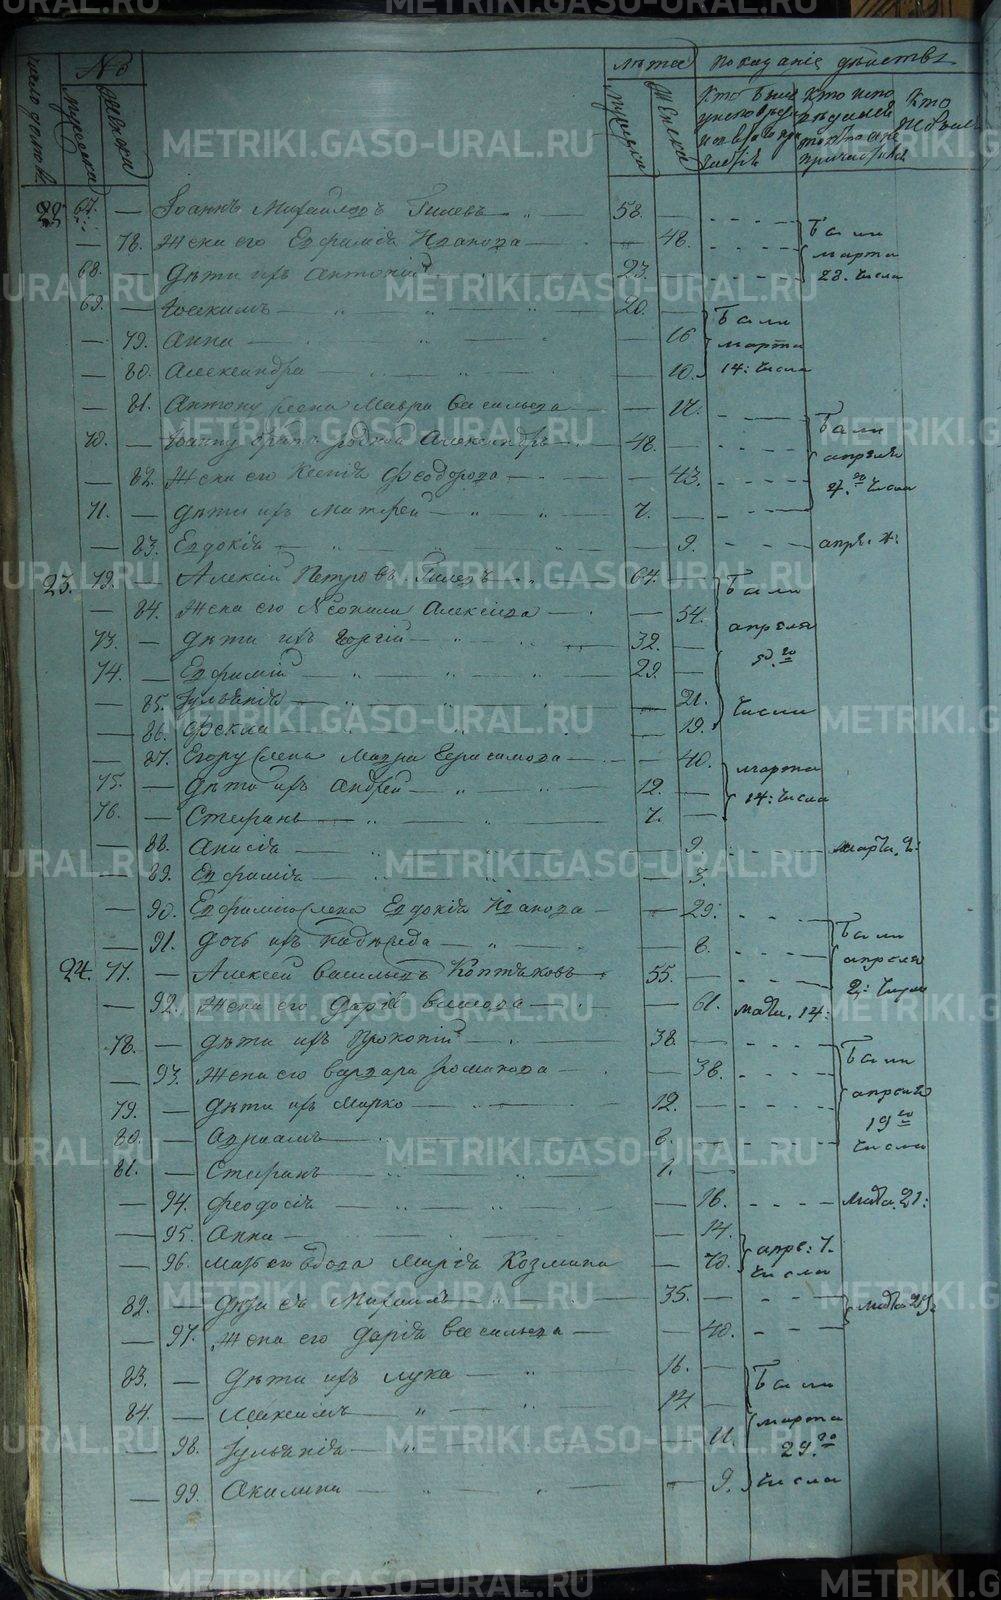 число дворовъ № мужеска женска лѣта мужеска женска Показаніе дѣйства
Кто былъ у исповѣди и
Кто исповѣдался токмо а не причастился
Кто не былъ
22. 67. — Іоаннъ Михайловъ Гилевъ 58. —
— 78. Жена его Евфимія Иванова — 48. Были марта 28. числа
68. — Дѣти ихъ Антоній 23. —
69. — Іоакимъ 20. —
— 79. Анна — 16 Были марта 14: числа
— 80. Александра — 10.
— 81. Антону жена Мавра Васильева — 17.
70. — Іоанну братъ родной Александръ 48. Были апрѣля
— 82. Жена его Ксенія Феодорова — 43. числа
71. — Дѣти ихъ Матфей 7. —
— 83. Евдокія — 9. апре.
23. 72. — Алексій Петровъ Гилевъ 64. — Были
— 84. Жена его Неонила Алексіева — 54. апрѣля
73. — Дѣти ихъ Георгій 32. —
74. — Евфимій 29 —
— 85. Іуліанія — 21. числа
— 86. Фекла — 19.
— 87. Егору жена Мавра Герасимова — 40. марта
75. — Дѣти ихъ Андрей 12. — 14: числа
76. — Стефанъ 7. —
— 88. Анисія — 9 марта. 2:
— 89. Евфимія — 3.
— 90. Евфимію жена Евдокія Иванова — 29. Были
— 91. Дочь ихъ — 8. апрѣля
24. 77. — Алексей Васильевъ Коптяковъ 55. — 2: числа
— 92. Жена его Дарія — 61. марта. 14:
78. — Дѣти ихъ Прокопій 38. Были
— 93. Жена его Варвара Романова — 38. апрѣля
79. — Дѣти ихъ Марко 12. — 19 го
80. — Авраамъ 8. — числа
81. — Стефанъ 1. —
— 94. Феодосія — 16. марта. 21:
— 95. Анна — 14.
— 96. Мать его вдова Марія Козмина — 70. апре: 7. числа
82. — Дѣти ея Михаилъ 35. — марта 29
— 97. Жена его Дарія Васильева — 40.
83. — Дѣти ихъ Лука 16. — Были
84. — Максимъ 14. марта
— 98. Іуліанія — 11. 29. го
— 99. Акилина — 9. числа
METRIKI.GASO-URAL.RU